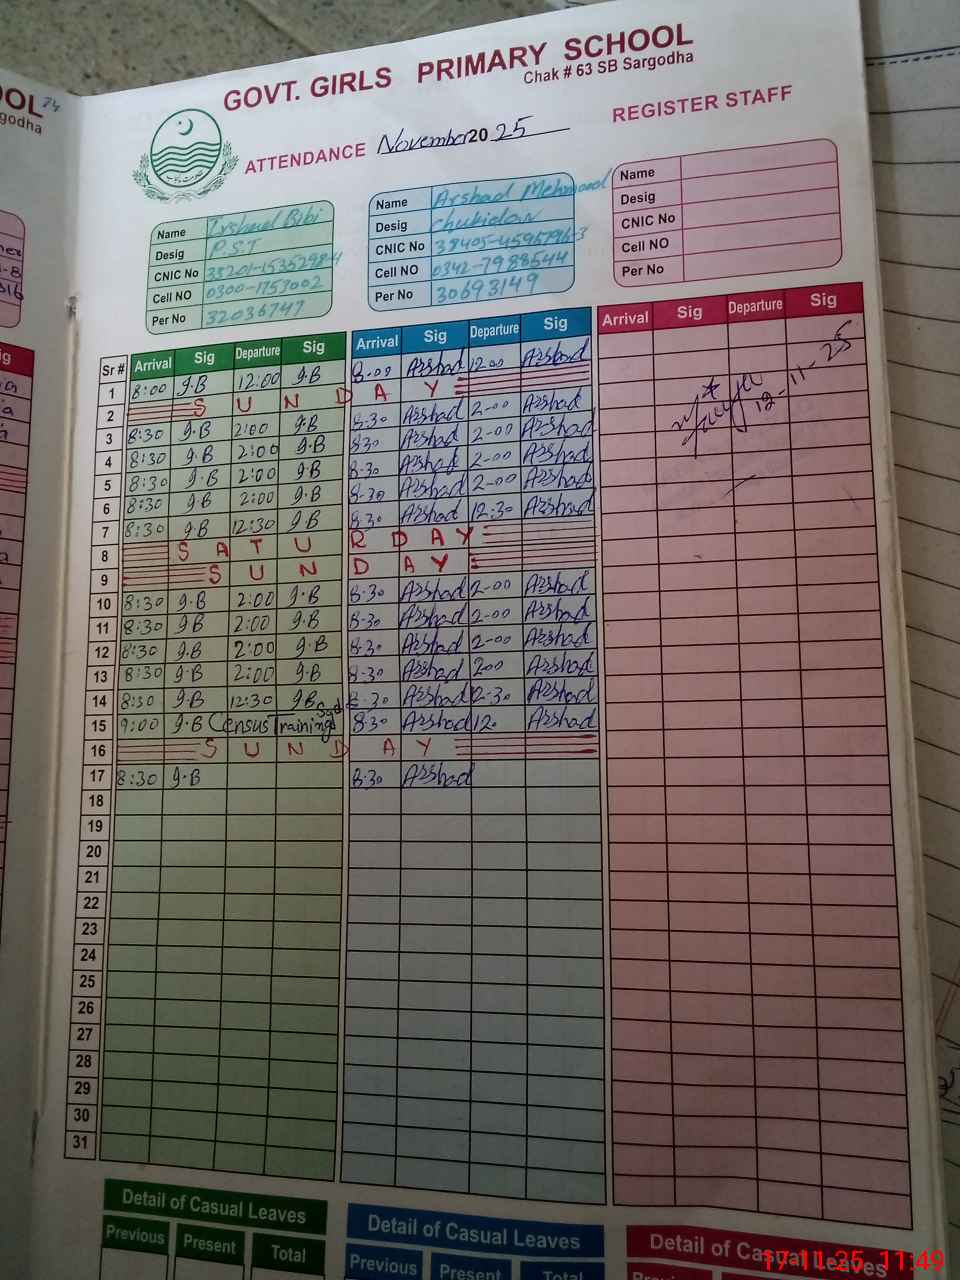 GOVT. GIRLS PRIMARY SCHOOL
Chak # 63 SB Sargodha
ATTENDANCE November 2025 REGISTER STAFF
Name Irshad Bibi
Desig P.S.T
CNIC No 38201-1535298-4
Cell NO 0300-1753002
Per No 32036747
Name Arshad Mehmood
Desig Chukidar
CNIC No 38405-4595796-3
Cell NO 0342-7988544
Per No 30693149
Name
Desig
CNIC No
Cell NO
Per No
Sr # Arrival Sig Departure Sig Arrival Sig Departure Sig Arrival Sig Departure Sig
1 8:00 G.B 12:00 G.B 8-00 Arshad 12-00 Arshad
2 SUNDAY
3 8:30 G.B 2:00 G.B 8-30 Arshad 2-00 Arshad
4 8:30 G.B 2:00 G.B 830 Arshad 2-00 Arshad
5 8:30 G.B 2:00 G.B 8-30 Arshad 2-00 Arshad
6 8:30 G.B 2:00 G.B 8-30 Arshad 2-00 Arshad
7 8:30 G.B 12:30 G.B 8-30 Arshad 12:30 Arshad
8 SATURDAY
9 SUNDAY
10 8:30 G.B 2:00 G.B 8-30 Arshad 2-00 Arshad
11 8:30 G.B 2:00 G.B 8-30 Arshad 2-00 Arshad
12 8:30 G.B 2:00 G.B 8-30 Arshad 2-00 Arshad
13 8:30 G.B 2:00 G.B 8-30 Arshad 200 Arshad
14 8:30 G.B 12:30 G.B 8-30 Arshad 12-30 Arshad
15 9:00 G.B Census Training Sgd 8-30 Arshad 12. Arshad
16 SUNDAY
17 8:30 G.B 8-30 Arshad
18
19
20
21
22
23
24
25
26
27
28
29
30
31
12-11-25
Detail of Casual Leaves Detail of Casual Leaves Detail of Casual Leaves
Previous Present Total Previous Present Total
17-11-25 11:49